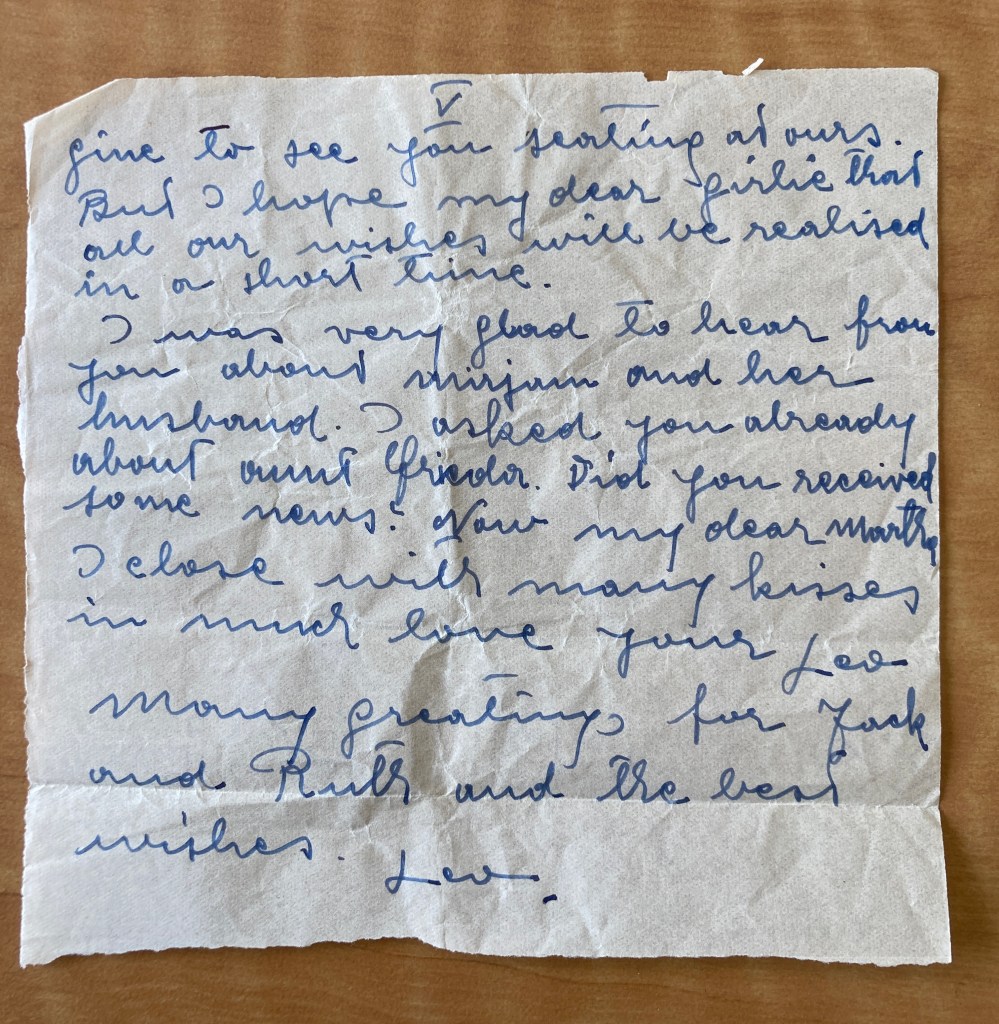 V
gine to see you seating at ours.
But I hope my dear girlie that
all our wishes will be realised
in a short time.
I was very glad to hear from
you about mirjam and her
husband. I asked you already
about aunt Frieda. Did you received
some news? Now my dear Martha
I close with many kisses
in much love your Leo
Many greatings for Jack
and Ruth and the best
wishes. Leo.